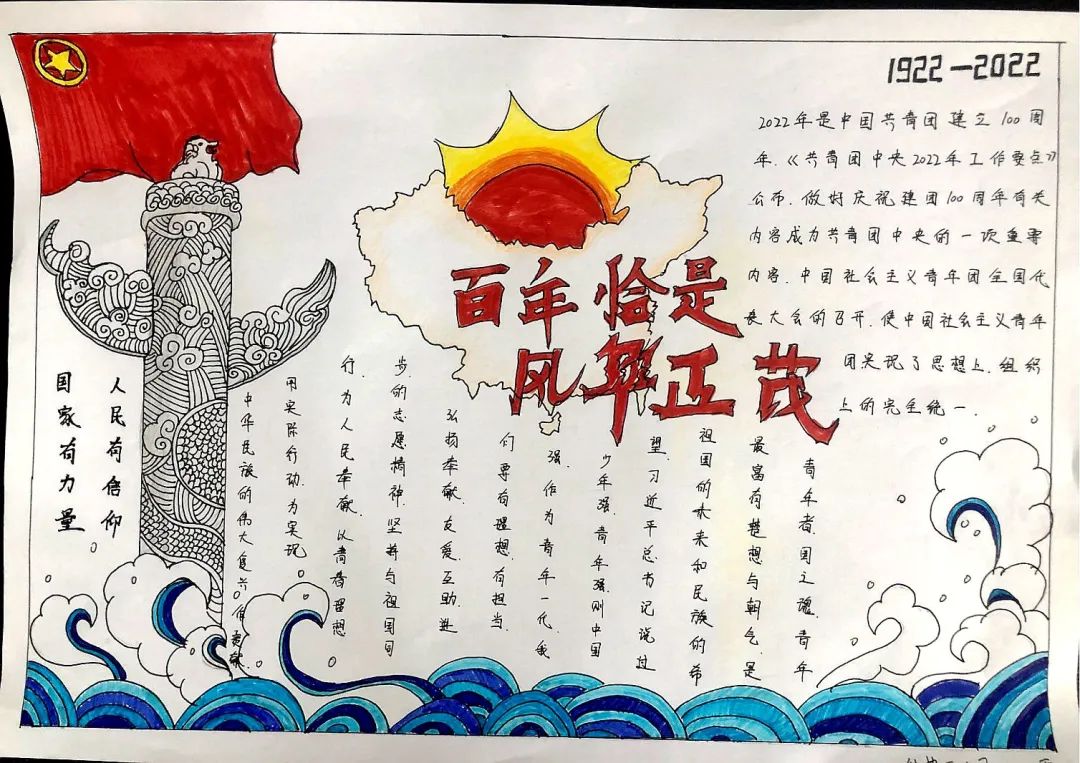 1922—2022
2022年是中国共青团建立100周
年.《共青团中央2022年工作要点》
公布.做好庆祝建团100周年有关
内容成为共青团中央的一项重要
内容.中国社会主义青年团全国代
表大会的召开.使中国社会主义青年
团实现了思想上.组织
上的完全统一.
百年恰是
风华正茂
青年者.国之魂.青年
最富有梦想与朝气.是
祖国的未来和民族的希
望.习近平总书记说过
少年强.青年强.则中国
强.作为青年一代.我
们要有理想.有担当.
弘扬奉献.友爱.互助.进
步.的志愿精神.坚持与祖国同
行.为人民奉献.以青春梦想
用实际行动.为实现
中华民族的伟大复兴作贡献.
人民有信仰
国家有力量